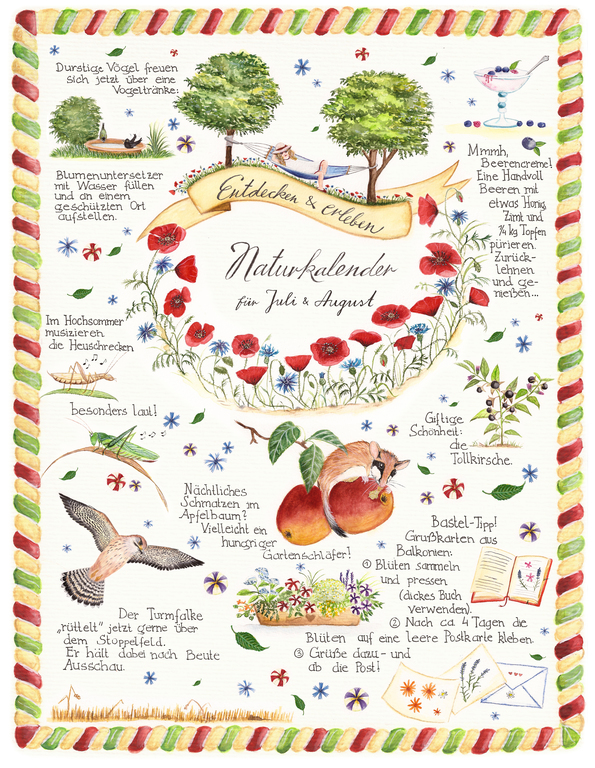 Durstige Vögel freuen
sich jetzt über eine
Vogeltränke:
Blumenuntersetzer
mit Wasser füllen
und an einem
geschützten Ort
aufstellen.
Entdecken & Erleben
Naturkalender
für Juli & August
Mmmh,
Beerencreme!
Eine Handvoll
Beeren mit
etwas Honig,
Zimt und
¼ kg Topfen
pürieren.
Zurück-
lehnen
und ge-
nießen...
Im Hochsommer
musizieren
die Heuschrecken
besonders laut!
Giftige
Schönheit:
die
Tollkirsche.
Nächtliches
Schmatzen im
Apfelbaum?
Vielleicht ein
hungriger
Gartenschläfer!
Der Turmfalke
„rüttelt" jetzt gerne über
dem Stoppelfeld.
Er hält dabei nach Beute
Ausschau.
Bastel-Tipp!
Grußkarten aus
Balkonien:
① Blüten sammeln
und pressen
(dickes Buch
verwenden).
② Nach ca. 4 Tagen die
Blüten auf eine leere Postkarte kleben.
③ Grüße dazu - und
ab die Post!